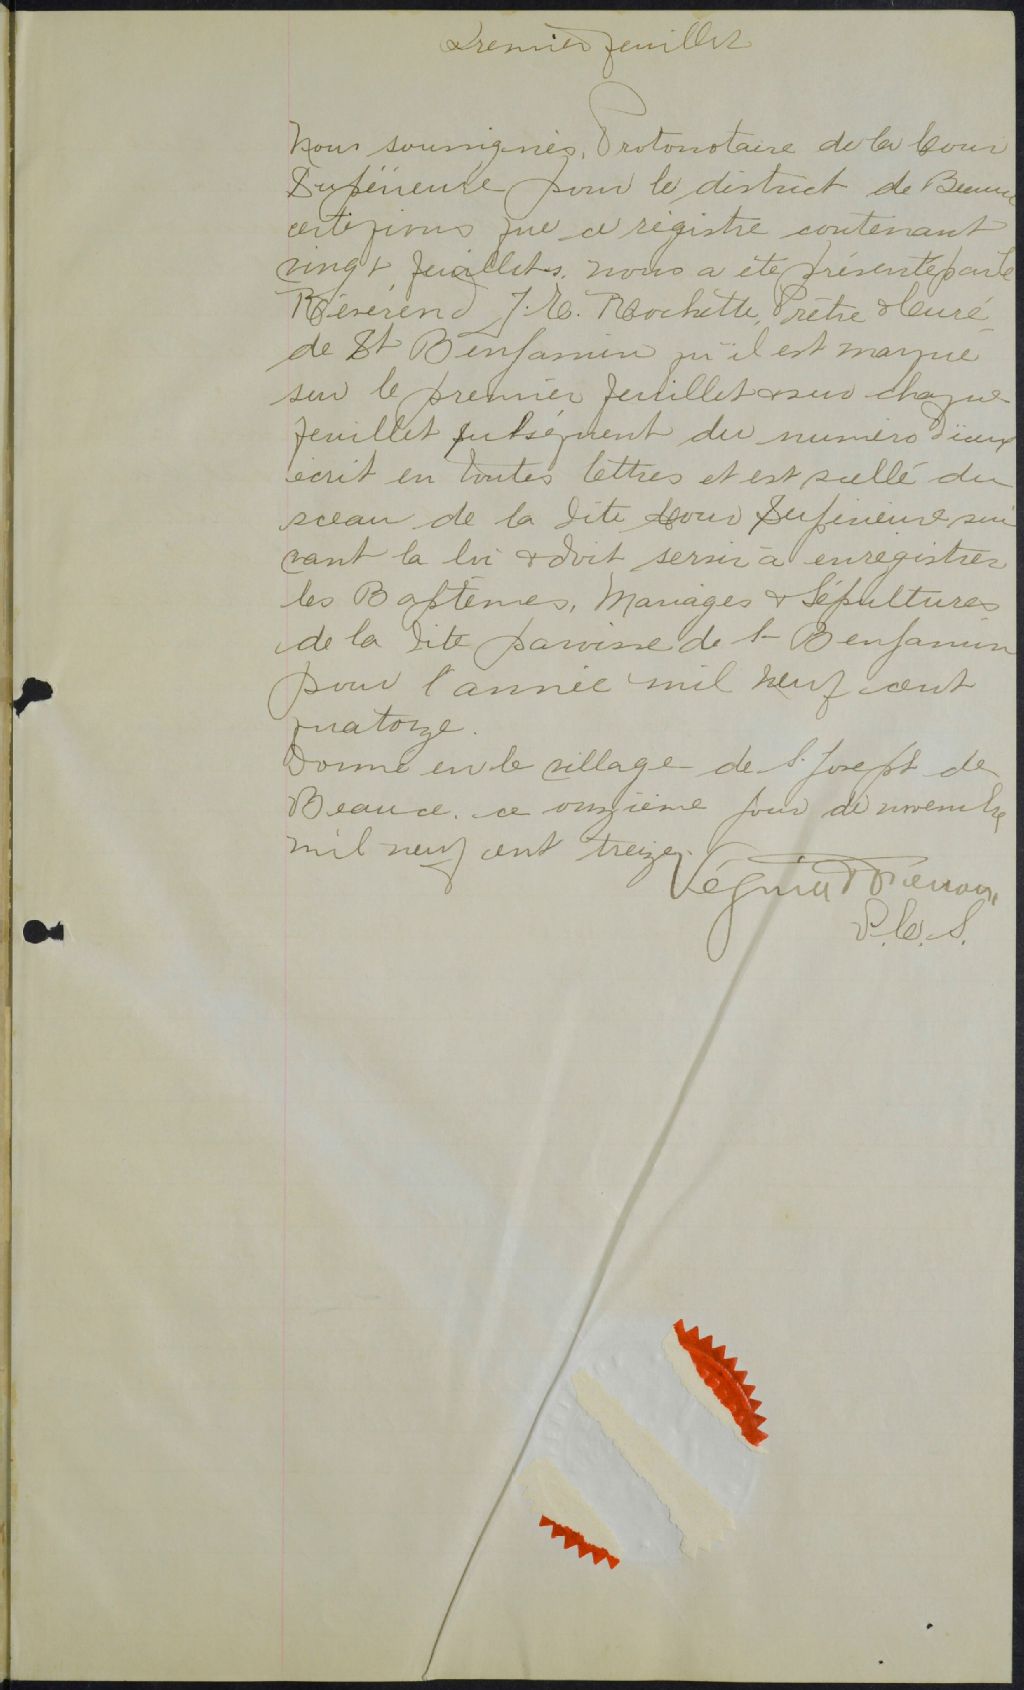 Premier feuillet
Nous soussignés, Protonotaire de la Cour
Supérieure pour le district de Beauce
certifions que ce régistre contenant
vingt feuillets, nous a été présenté par le
Révérend J. E. Rochette, Prêtre & Curé
de St Benjamin qu'il est marqué
sur le premier feuillet & sur chaque
feuillet subséquent du numéro d'iceux
écrit en toutes lettres et est scellé du
sceau de la dite Cour Supérieure sui
vant la loi & doit servir à enregistrer
les Baptêmes, Mariages & Sépultures
de la dite paroisse de St Benjamin
pour l'année mil neuf cent
quatorze.
Donné en le village de S. Joseph de
Beauce, ce onzième jour de novembre
mil neuf cent treize.
P. C. S.